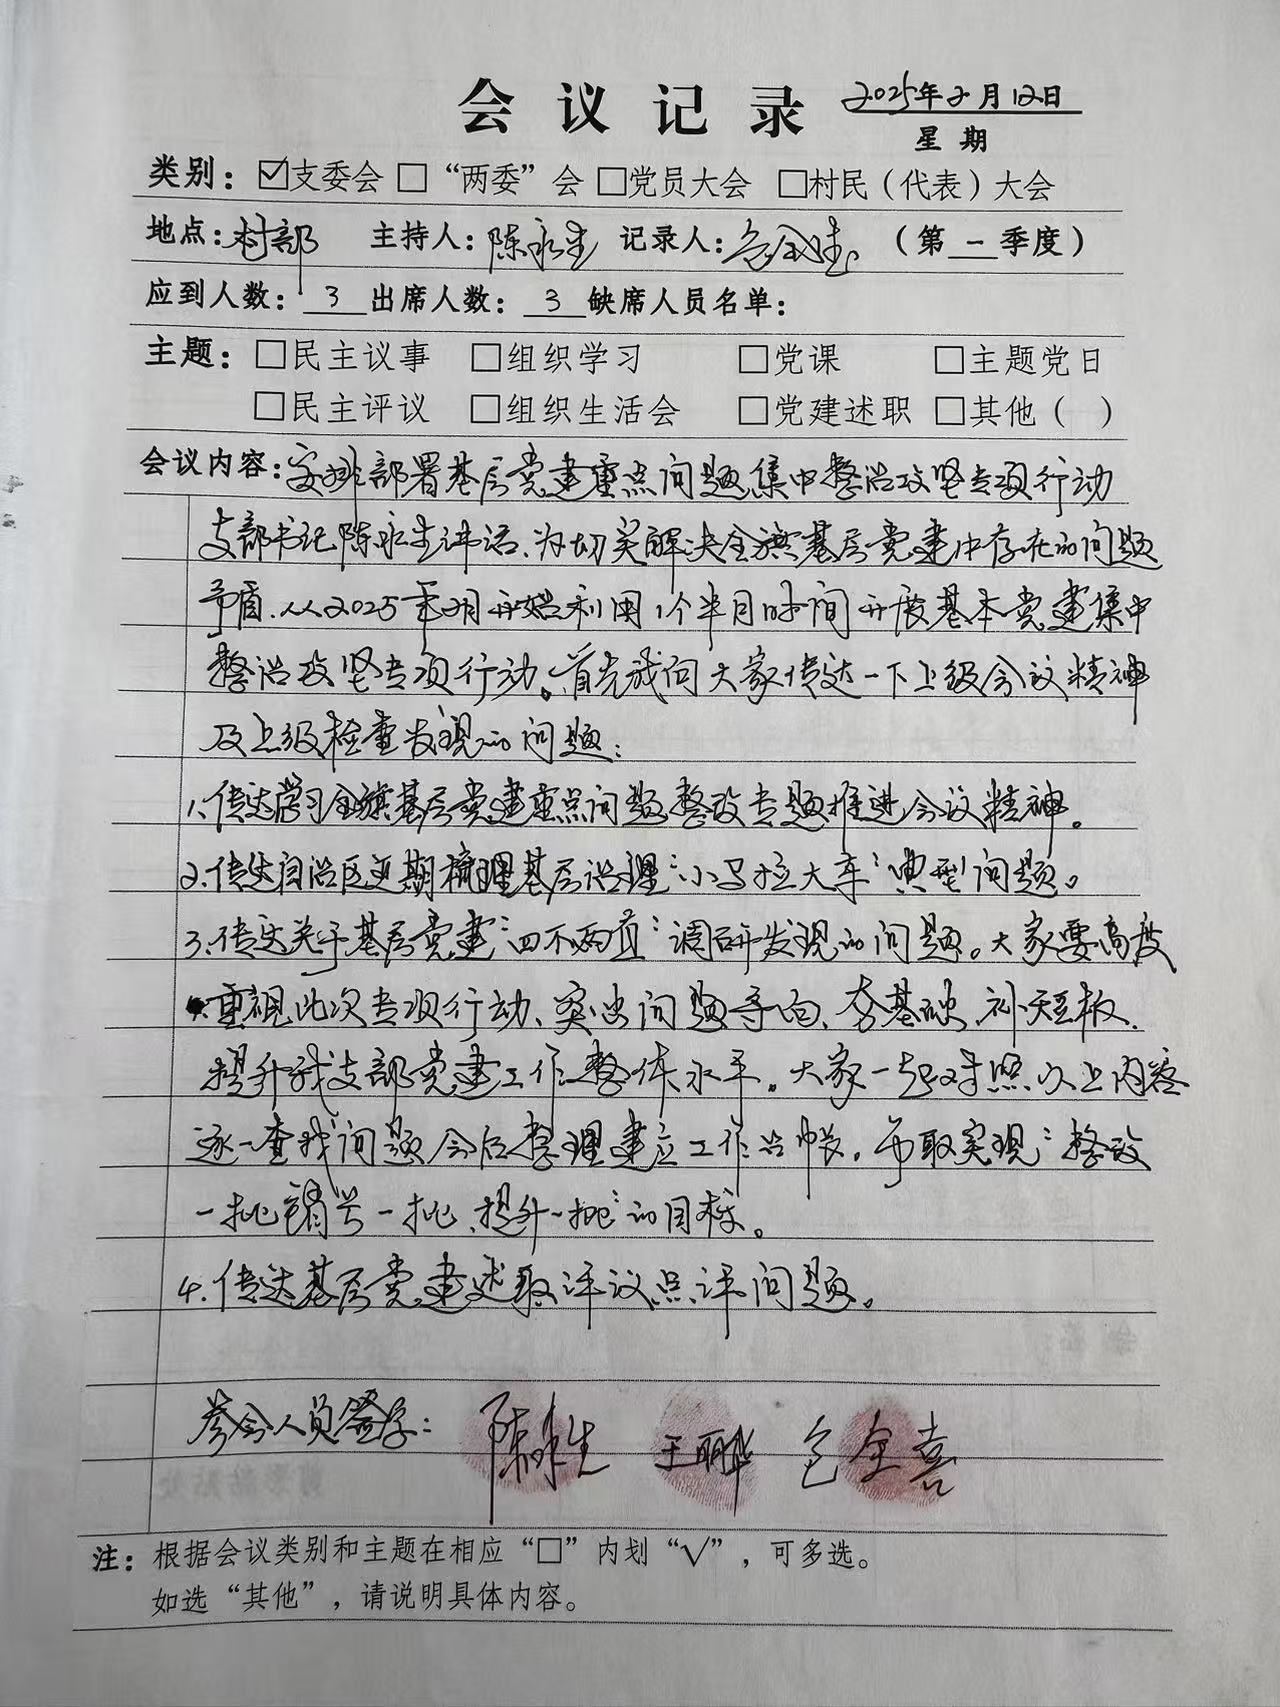 会议记录 2025年2月12日
星期
类别：☑支委会 □“两委”会 □党员大会 □村民（代表）大会
地点：村部 主持人：陈永生 记录人：包全喜 （第一季度）
应到人数：3 出席人数：3 缺席人员名单：
主题：□民主议事 □组织学习 □党课 □主题党日
□民主评议 □组织生活会 □党建述职 □其他（ ）
会议内容：安排部署基层党建重点问题集中整治攻坚专项行动
支部书记陈永生讲话、为切实解决全旗基层党建中存在的问题
矛盾、从2025年2月开始利用1个半月时间开展基本党建集中
整治攻坚专项行动。首先我向大家传达一下上级会议精神
及上级检查发现的问题：
1、传达学习全旗基层党建重点问题整改专题推进会议精神。
2、传达自治区近期梳理基层治理“小马拉大车”典型问题。
3、传达关于基层党建“四不两直”调研发现的问题。大家要高度
重视此次专项行动、突出问题导向、夯基础、补短板、
提升我支部党建工作整体水平。大家一起对照以上内容
逐一查找问题会后整理建立工作台帐。争取实现“整改
一批、销号一批、提升一批”的目标。
4、传达基层党建述职评议点评问题。
参会人员签字： 陈永生 王丽华 包全喜
注：根据会议类别和主题在相应“□”内划“√”，可多选。
如选“其他”，请说明具体内容。